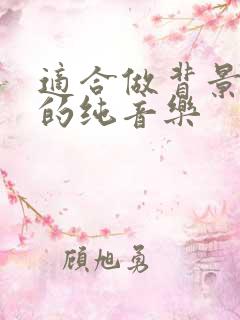 適合做背景
的纯音樂
顧旭勇